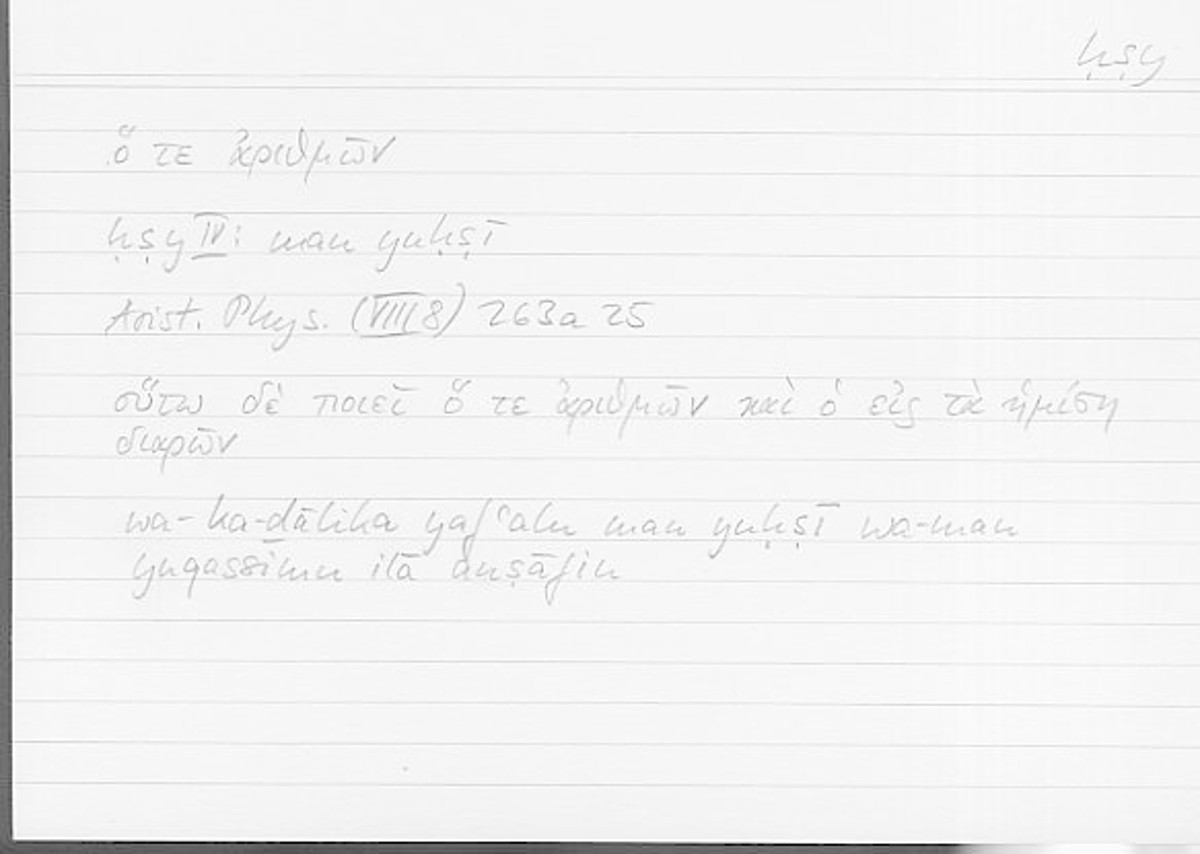 ḥṣy
ὅ τε ἀριθμῶν
ḥṣy IV: man yuḥṣī
Arist. Phys. (VIII 8) 263a 25
οὕτω δὲ ποιεῖ ὅ τε ἀριθμῶν καὶ ὁ εἰς τὰ ἡμίση
διαιρῶν
wa-ka-ḏālika yafʿalu man yuḥṣī wa-man
yuqassimu ilā anṣāfin